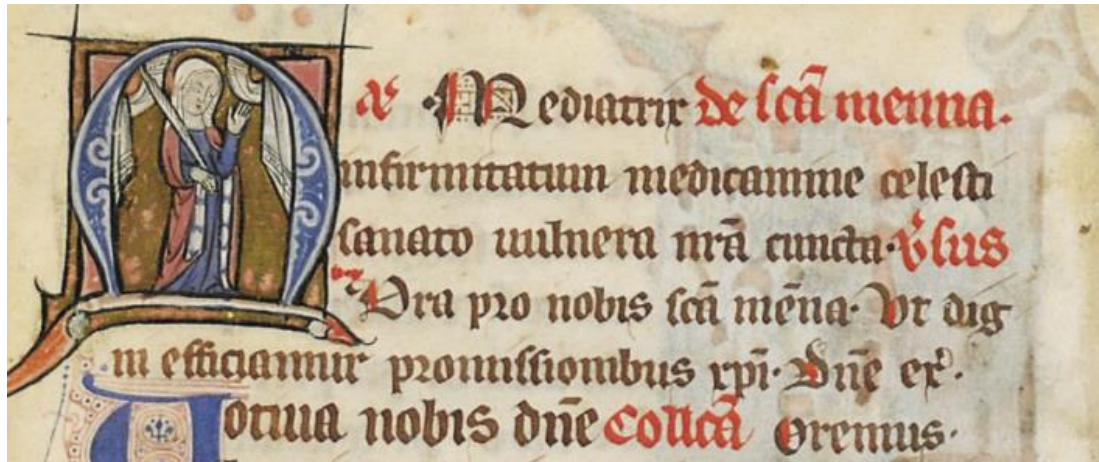 ·Mediatrix de scā menna.
infirmitatum medicamine celesti
sanato uulnera nrā cuncta· v̾sus
Ora pro nobis scā mēna· Vt dig
ni efficiamur promissionibus xpī· Dn̄e ex̾·
Uotiua nobis dn̄e Collcā Oremus·